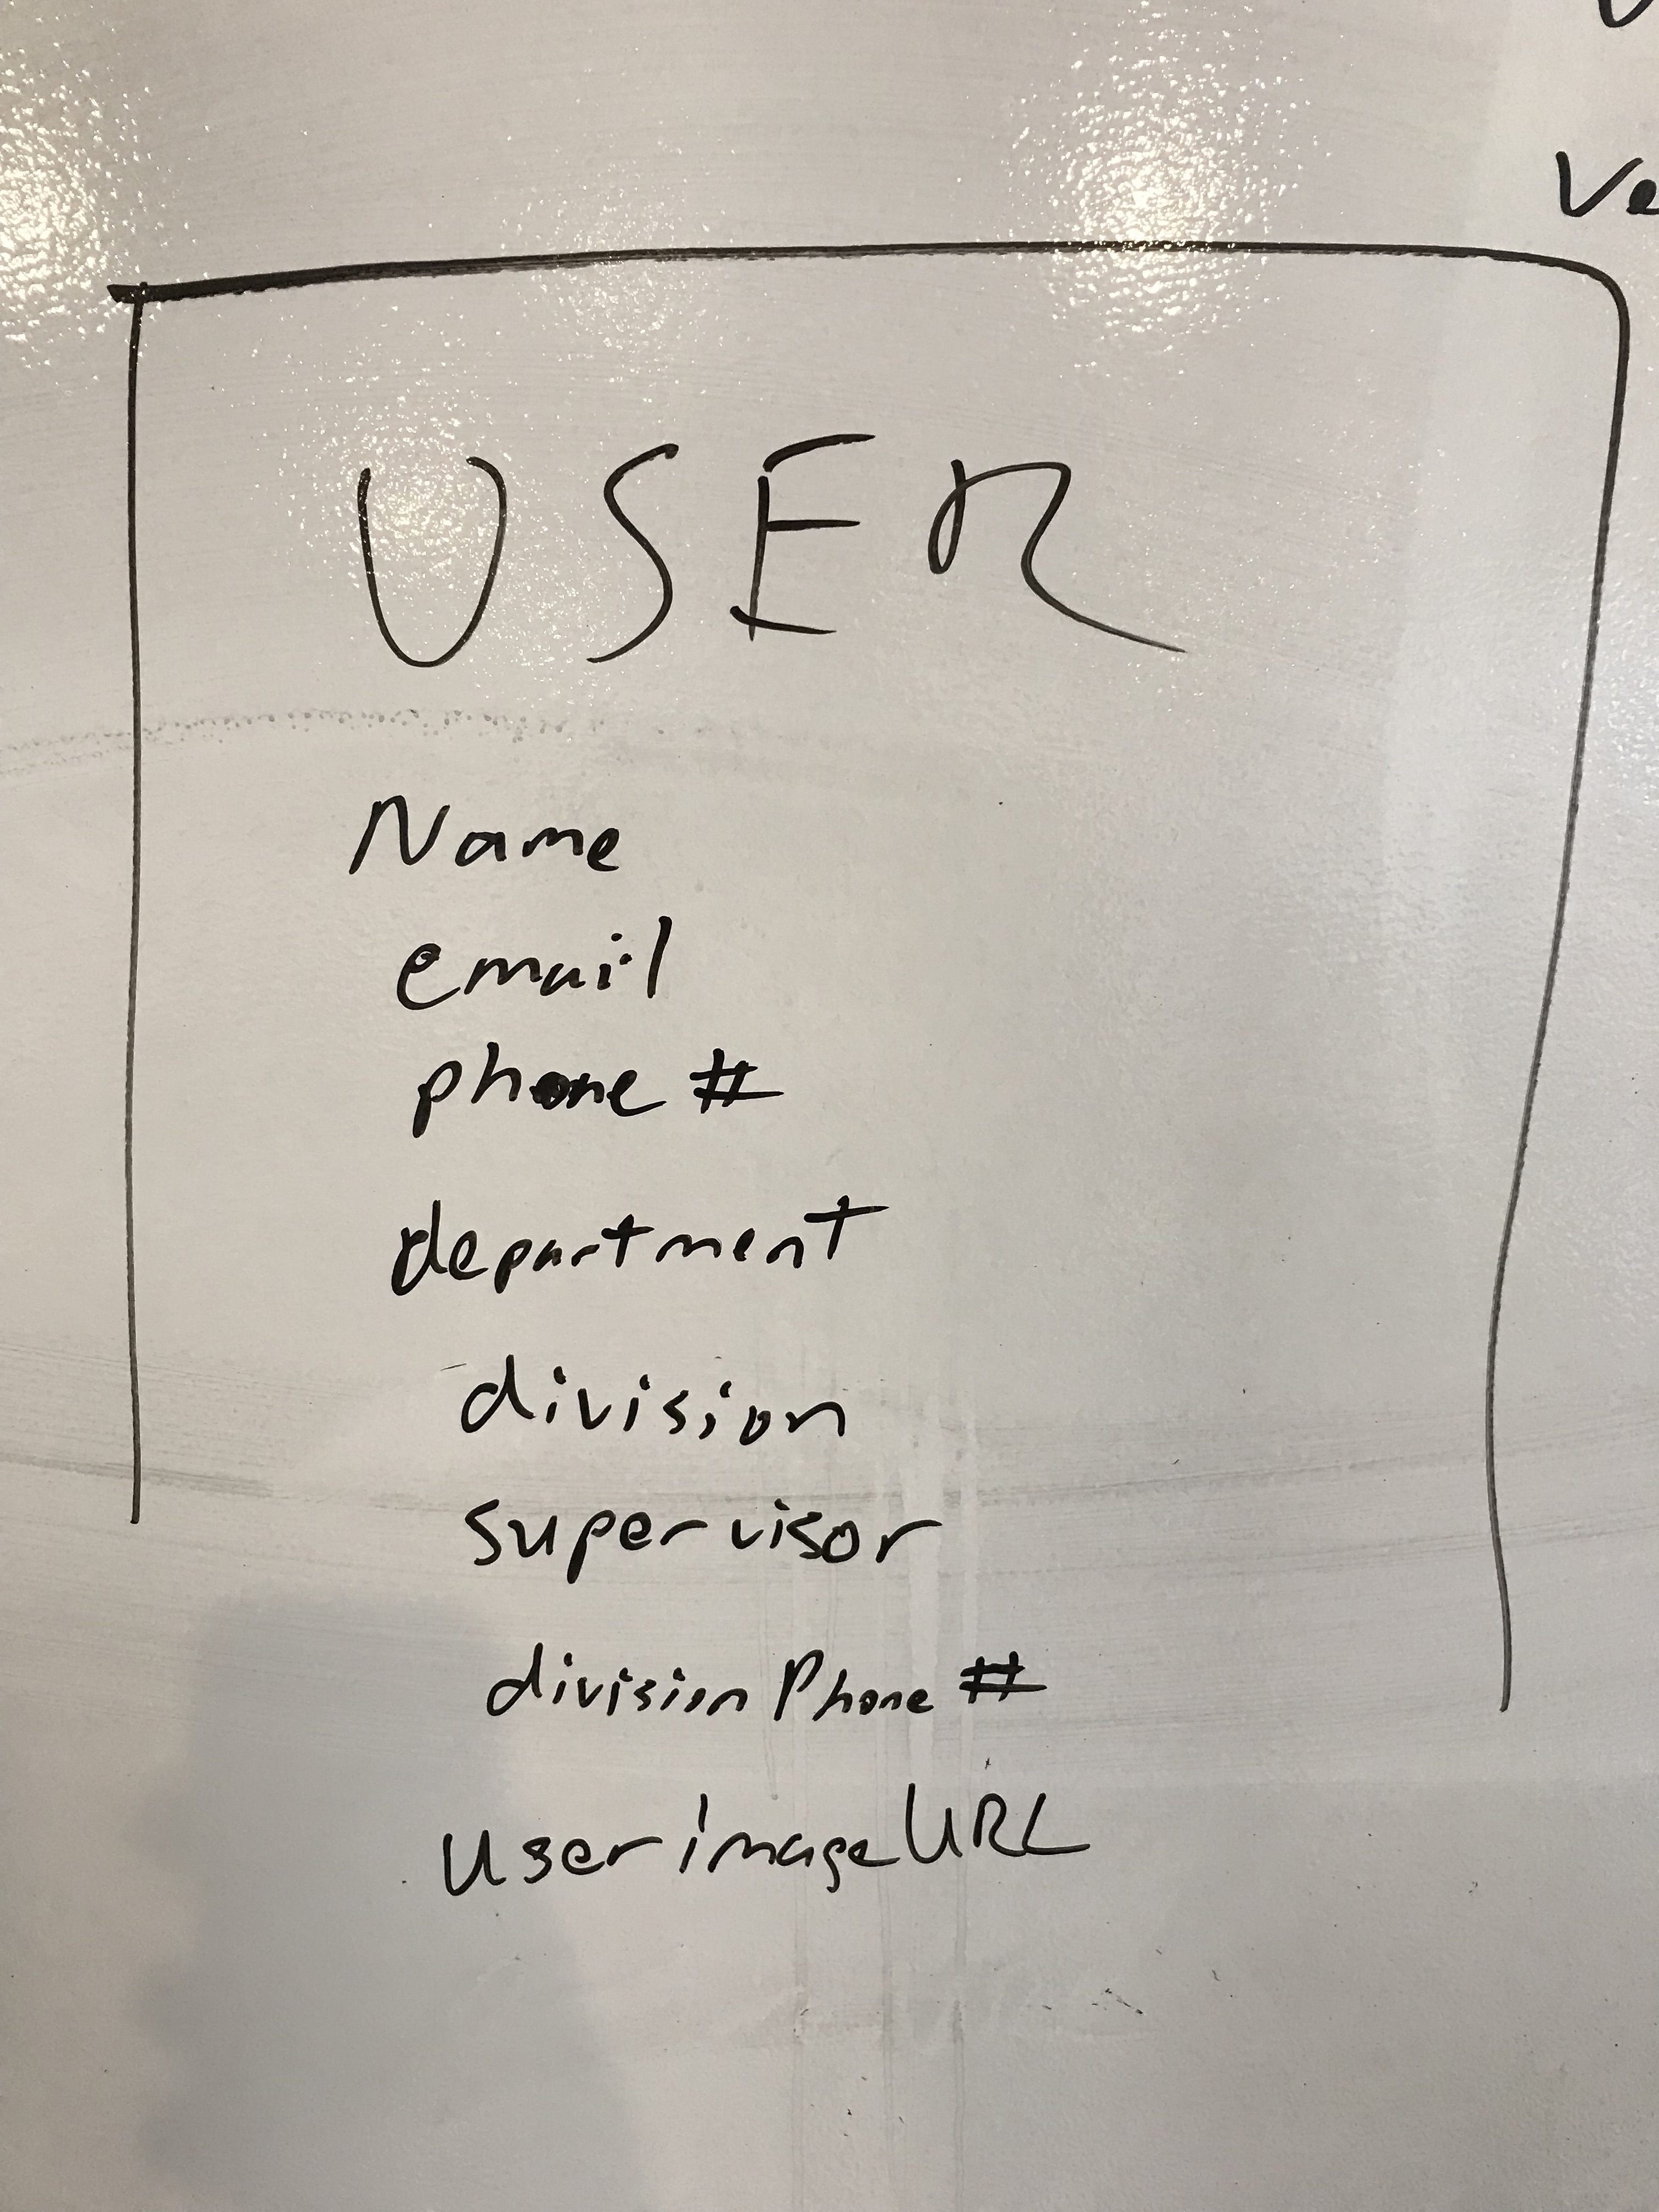 Ve
USER
Name
email
phone #
department
division
supervisor
division Phone #
userimageURL